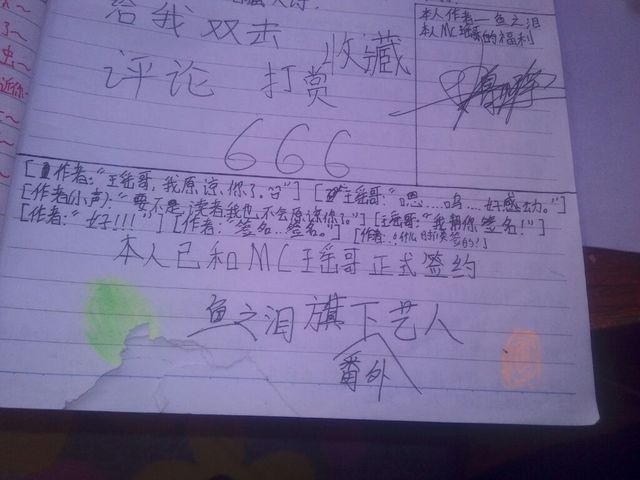 给我 双击
收藏
评论 打赏
666
本人作者—鱼之泪
本人MC瑶哥的福利
[作者:“王瑶哥,我原谅你了。”] [王瑶哥:“嗯……呜……好感动。”]
[作者(小声):“要不是读者我也不会原谅你了。”] [王瑶哥:“我帮你签名!”]
[作者:“好!!!”] [作者:“签名…签名。] [作者:什么时候签的!]
本人已和MC王瑶哥正式签约
鱼之泪旗下艺人
番外